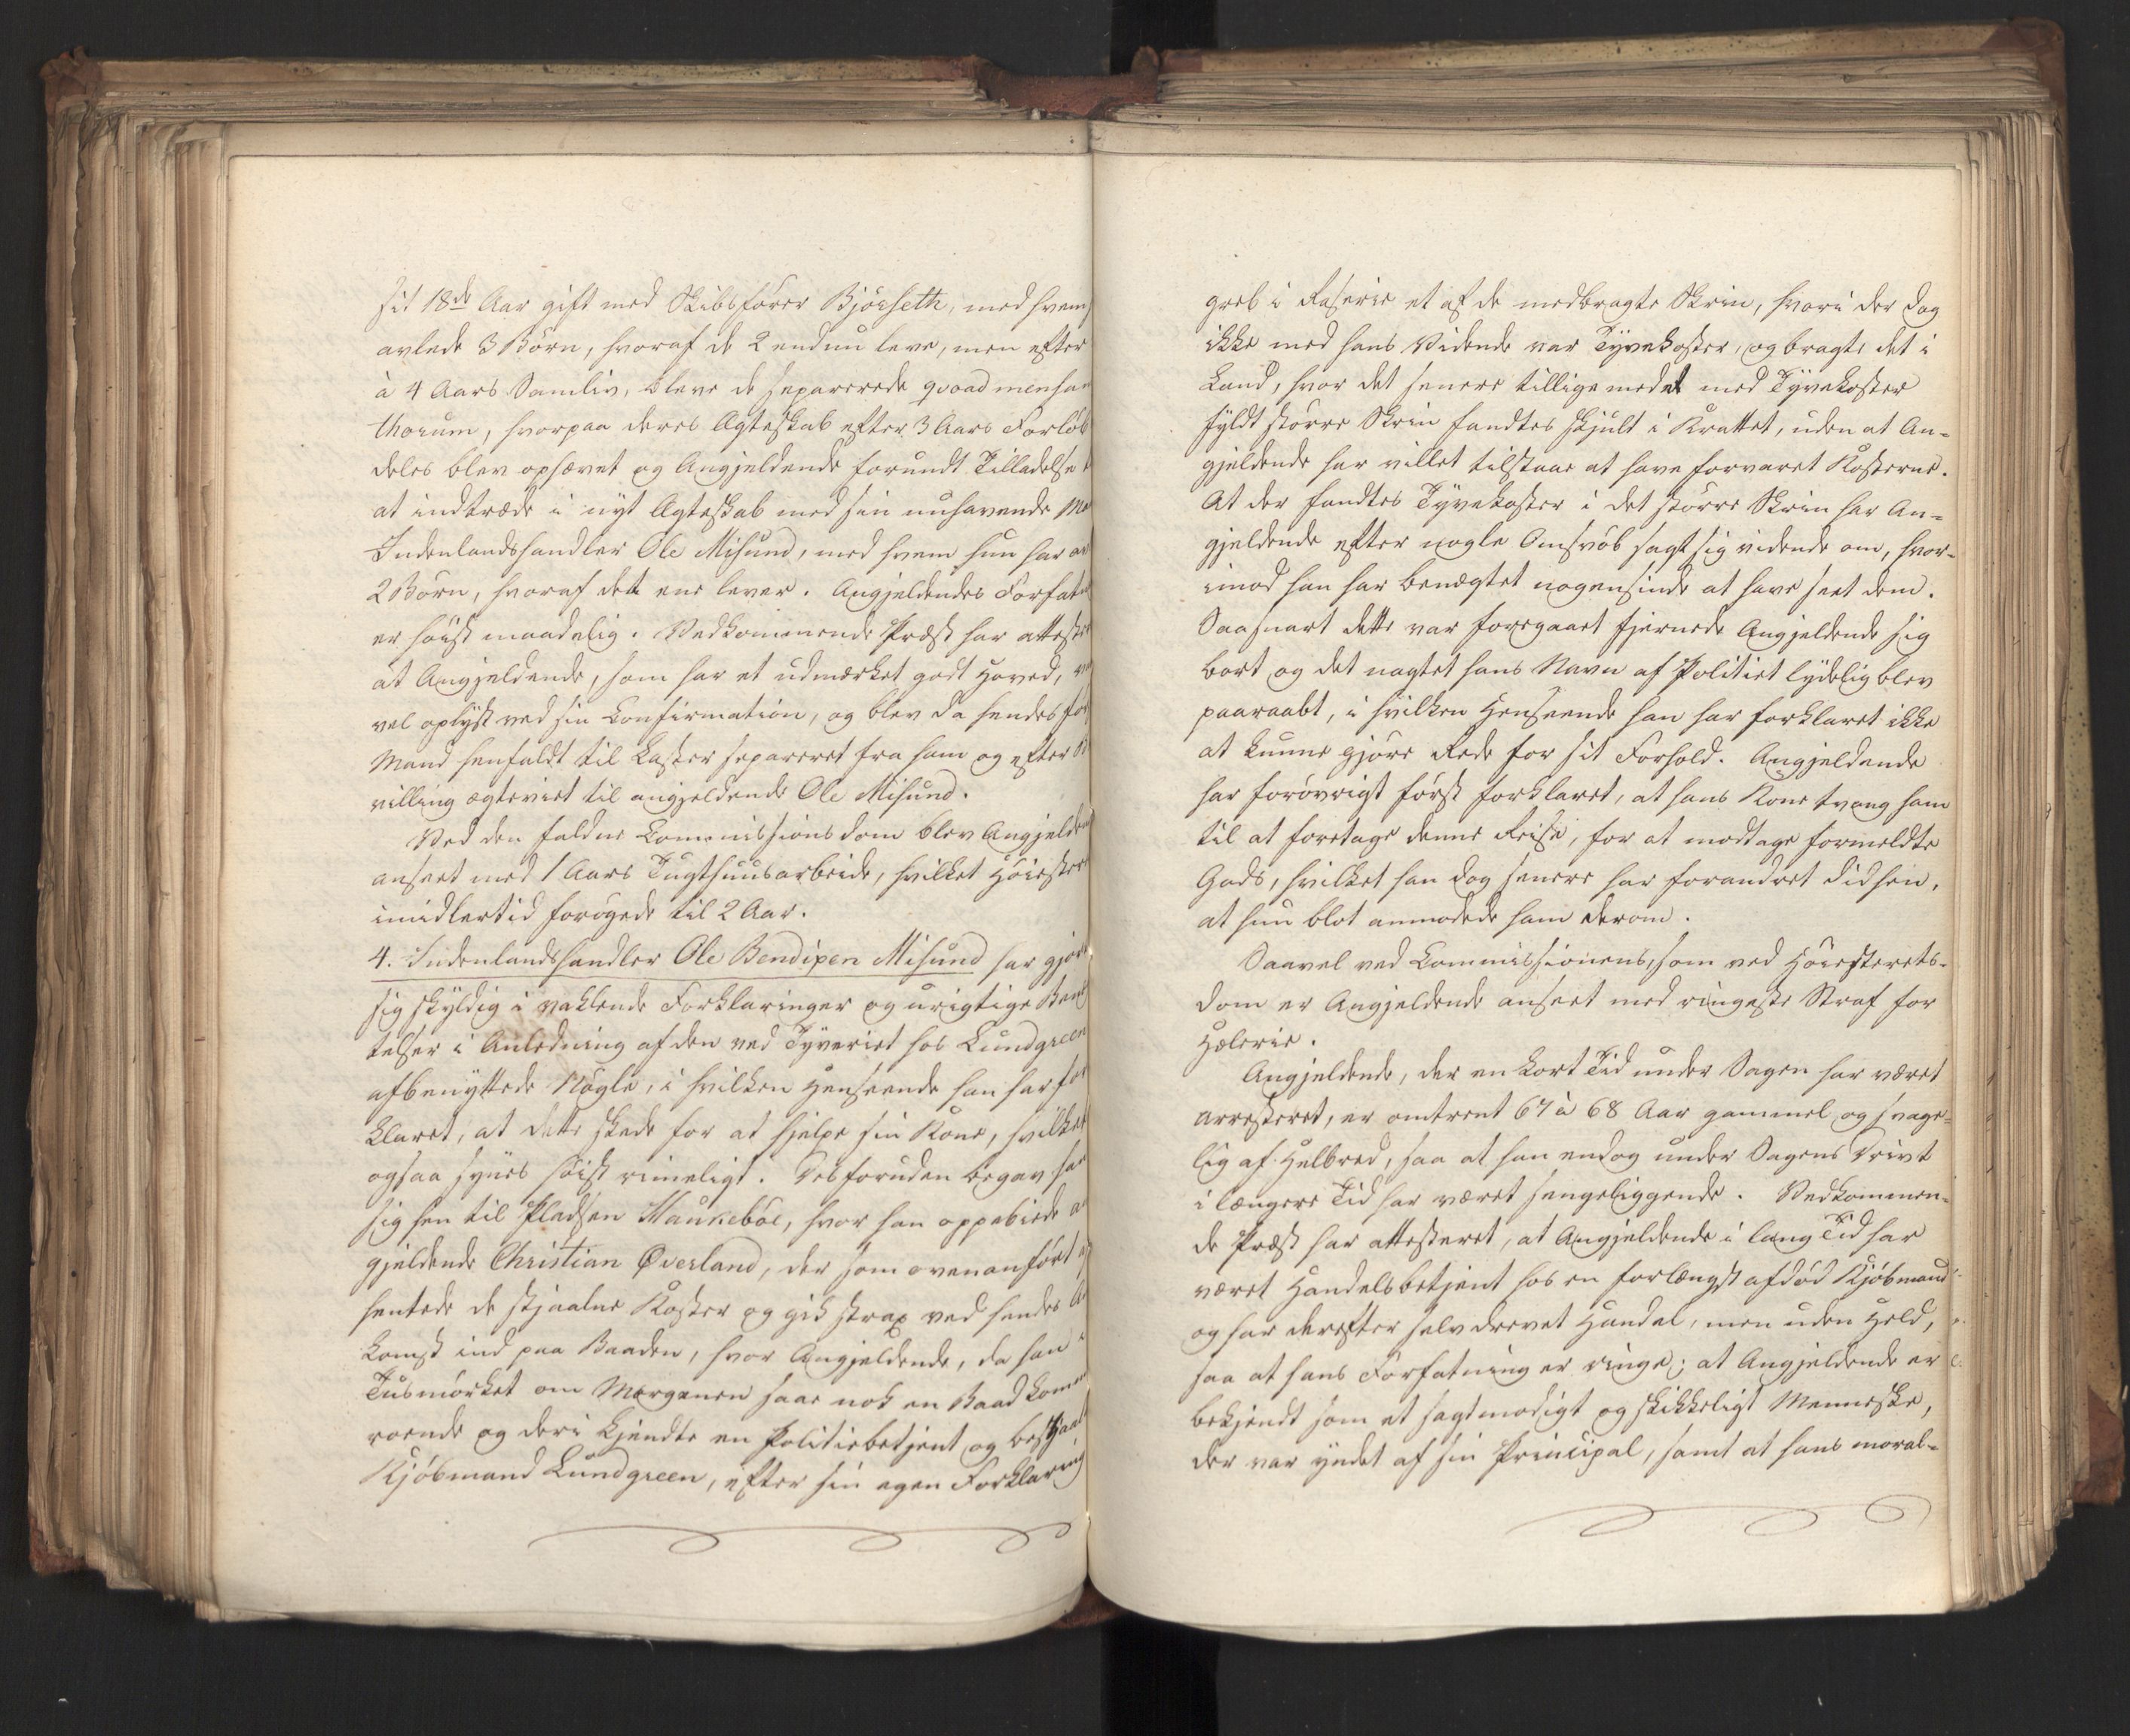 sit 18de Aar gift med Skibsfører Bjørseth, med hvem
avlede 3 Børn, hvoraf de 2 endnu leve, men efter
à 4 Aars Samliv, bleve de separerede qvoad mensam
thorum, hvorpaa deres Ægteskab efter 3 Aars Forløb
deles blev ophævet og Angjeldende forundt Tilladelse
at indtræde i nyt Ægteskab med sin nuhavende Ma
Indenlandshandler Ole Misund, med hvem hun har av
2 Børn, hvoraf det ene lever. Angjeldendes Forfatn
er høist maadelig. Vedkommende Præst har attester
at Angjeldende, som har et udmærket godt Hoved, va
vel oplyst ved sin Confirmation, og blev da hendes før
Mand henfaldt til Laster separeret fra ham og efter
villing ægteviet til angjeldende Ole Misund.
Ved den faldne Commissionsdom blev Angjelden
anseet med 1 Aars Tugthuusarbeide, hvilket Høiester
imidlertid forøgede til 2 Aar.
4. Indenlandshandler Ole Bendixen Misund har gjort
sig skyldig i vaklende Forklaringer og urigtige Benæg
telser i Anledning af den ved Tyveriet hos Lundgreen
afbenyttede Nøgle, i hvilken Henseende han har for
klaret, at dette skede for at hjelpe sin Kone, hvilket
ogsaa synes høist rimeligt. Desforuden begav han
sig hen til Pladsen Haukebøe, hvor han oppebiede an
gjeldende Christian Øverland, der som ovenanført af
hentede de stjaalne Koster og gik strax ved hendes An
komst ind paa Baaden, hvor Angjeldende, da han i
Tusmørket om Morgenen saae nok en Baad komme
roende og deri kjendte en Politiebetjent og bestjaal
Kjøbmand Lundgreen, efter sin egen Forklaring
greb i Raserie et af de medbragte Skrin, hvori der dog
ikke med hans Vidende var Tyvekoster, og bragte det i
Land, hvor det senere tilligemedet med Tyvekoster
fyldt større Skrin fandtes skjult i Krattet, uden at An-
gjeldende har villet tilstaae at have forvaret Kosterne.
At der fandtes Tyvekoster i det større Skrin har An-
gjeldende efter nogle Omsvøb sagt sig vidende om, hvor-
imod han har benægtet nogensinde at have seet dem.
Saasnart dette var foregaaet fjernede Angjeldende sig
bort og det uagtet hans Navn af Politiet lydelig blev
paaraabt, i hvilken Henseende han har forklaret ikke
at kunne gjøre Rede for sit Forhold. Angjeldende
har forøvrigt først forklaret, at hans Kone tvang ham
til at foretage denne Reise, for at modtage formeldte
Gods, hvilket han dog senere har forandret didhen,
at hun blot anmodede ham derom.
Saavel ved Commissionens, som ved Høiesterets-
dom er Angjeldende anseet med ringeste Straf for
Hælerie.
Angjeldende, der en kort Tid under Sagen har været
arresteret, er omtrent 67 à 68 Aar gammel og svage-
lig af Helbred, saa at han endog under Sagens Drivt
i længere Tid har været sengeliggende. Vedkommen-
de Præst har attesteret, at Angjeldende i lang Tid har
været Handelsbetjent hos en forlængst afdød Kjøbmand
og har derefter selv drevet Handel, men uden Held,
saa at hans Forfatning er ringe; at Angjeldende er
bekjendt som et sagtmodigt og skikkeligt Menneske,
der var yndet af sin Principal, samt at hans moral-